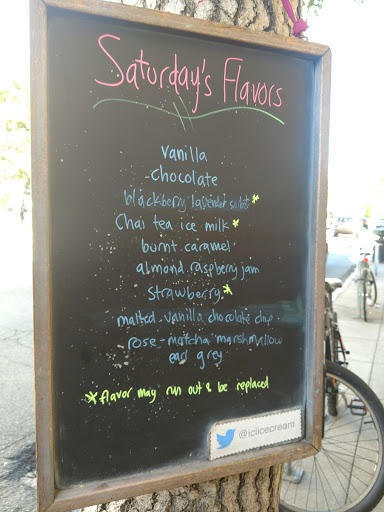 Saturday's Flavors
vanilla
-chocolate
blackberry lavender sorbet*
Chai tea ice milk*
burnt caramel
almond raspberry jam
strawberry*
malted-vanilla chocolate chip-
rose-matcha marshmallow
earl grey
*flavor may run out & be replaced
@iciicecream